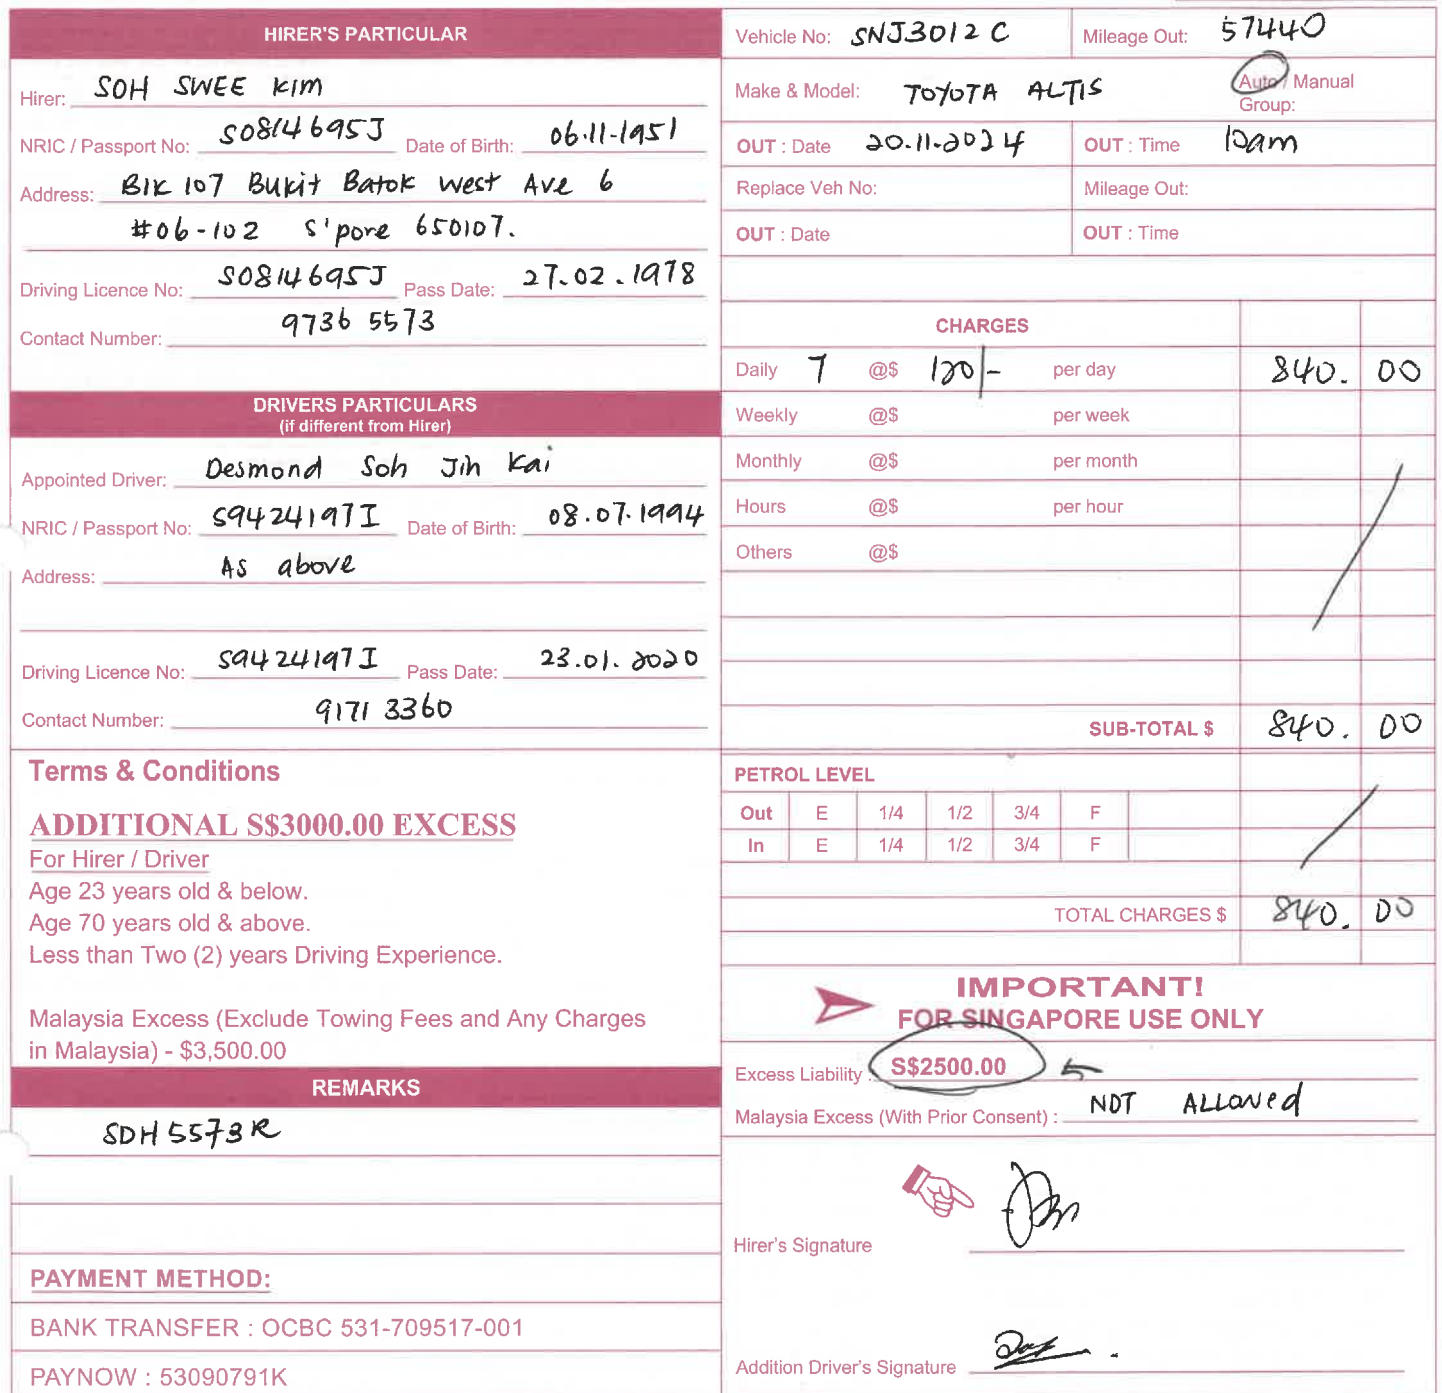 HIRER'S PARTICULAR
Hirer: SOH SWEE KIM
NRIC / Passport No: S0814695J Date of Birth: 06.11.1951
Address: Blk 107 Bukit Batok West Ave 6
#06-102 S'pore 650107.
Driving Licence No: S0814695J Pass Date: 27.02.1978
Contact Number: 9736 5573
DRIVERS PARTICULARS
(if different from Hirer)
Appointed Driver: Desmond Soh Jih Kai
NRIC / Passport No: S9424197I Date of Birth: 08.07.1994
Address: As above
Driving Licence No: S9424197I Pass Date: 23.01.2020
Contact Number: 9171 3360
Terms & Conditions
ADDITIONAL S$3000.00 EXCESS
For Hirer / Driver
Age 23 years old & below.
Age 70 years old & above.
Less than Two (2) years Driving Experience.
Malaysia Excess (Exclude Towing Fees and Any Charges
in Malaysia) - $3,500.00
REMARKS
SDH5573R
PAYMENT METHOD:
BANK TRANSFER : OCBC 531-709517-001
PAYNOW : 53090791K
Vehicle No: SNJ3012C Mileage Out: 57440
Make & Model: TOYOTA ALTIS Auto / Manual
Group:
OUT : Date 20.11.2024 OUT : Time 10am
Replace Veh No: Mileage Out:
OUT : Date OUT : Time
CHARGES
Daily 7 @$ 120/- per day 840.00
Weekly @$ per week
Monthly @$ per month
Hours @$ per hour
Others @$
SUB-TOTAL $ 840.00
PETROL LEVEL
Out E 1/4 1/2 3/4 F
In E 1/4 1/2 3/4 F
TOTAL CHARGES $ 840.00
IMPORTANT!
FOR SINGAPORE USE ONLY
Excess Liability : S$2500.00
Malaysia Excess (With Prior Consent) : NOT ALLOWED
Hirer's Signature
Addition Driver's Signature